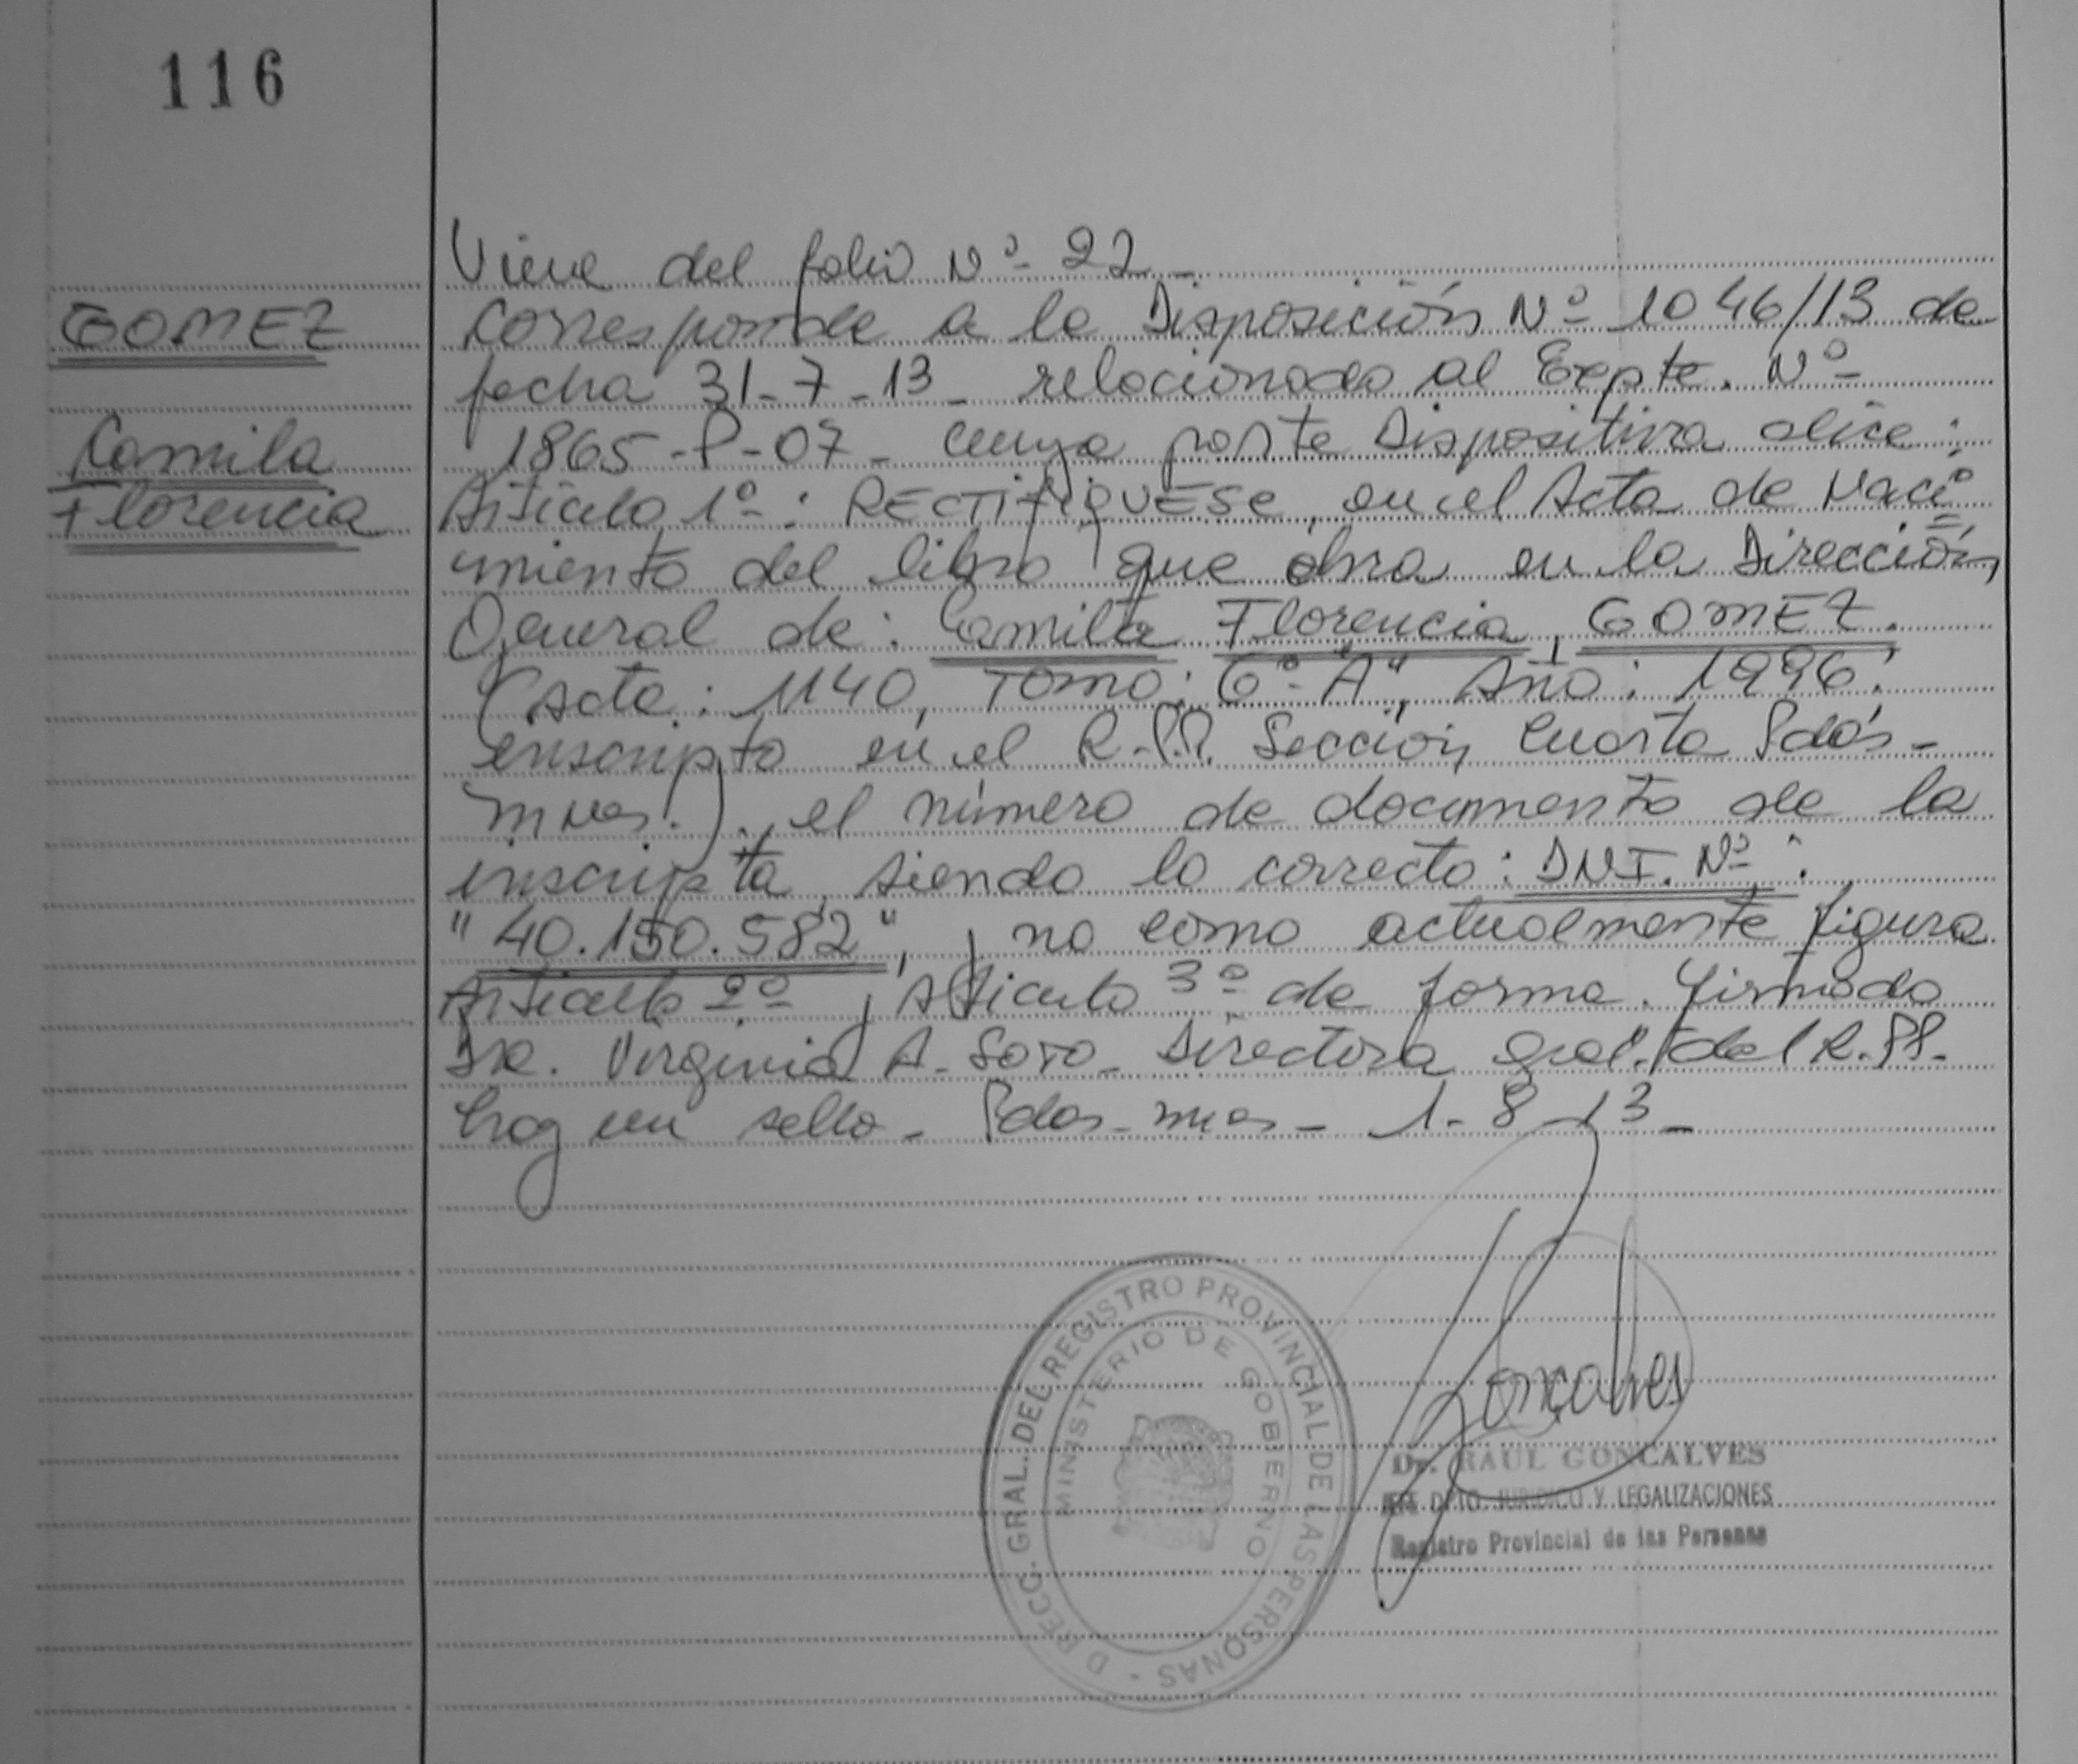 116
GOMEZ
Camila
Florencia
Viene del folio Nº 22 -
Corresponde a la Disposición Nº 1046/13 de
fecha 31-7-13 - relacionado al Expte. Nº
1865-P-07- cuya parte Dispositiva dice:
Artículo 1º: RECTIFIQUESE, en el Acta de Naci
miento del libro que obra en la Dirección
General de: Camila Florencia, GOMEZ.
(Acta: 1140, Tomo: 6º "A", Año: 1996.
inscripta en el R.P.P. Sección Cuarta Pdás-
Mnes.)., el número de documento de la
inscripta, siendo lo correcto: DNI. Nº:
"40.150.582", y no como actualmente figura
Artículo 2º y Artículo 3º de forma. Firmado
Dra. Virginia A. Soto - Directora Gral. del R.PP.
hay un sello - Pdas-mnes - 1-8-13 -
Goncalves
DIRECC. GRAL. DEL REGISTRO PROVINCIAL DE LAS PERSONAS -
MINISTERIO DE GOBIERNO
Dr. RAUL GONCALVES
DPTO. JURIDICO Y LEGALIZACIONES
Registro Provincial de las Personas